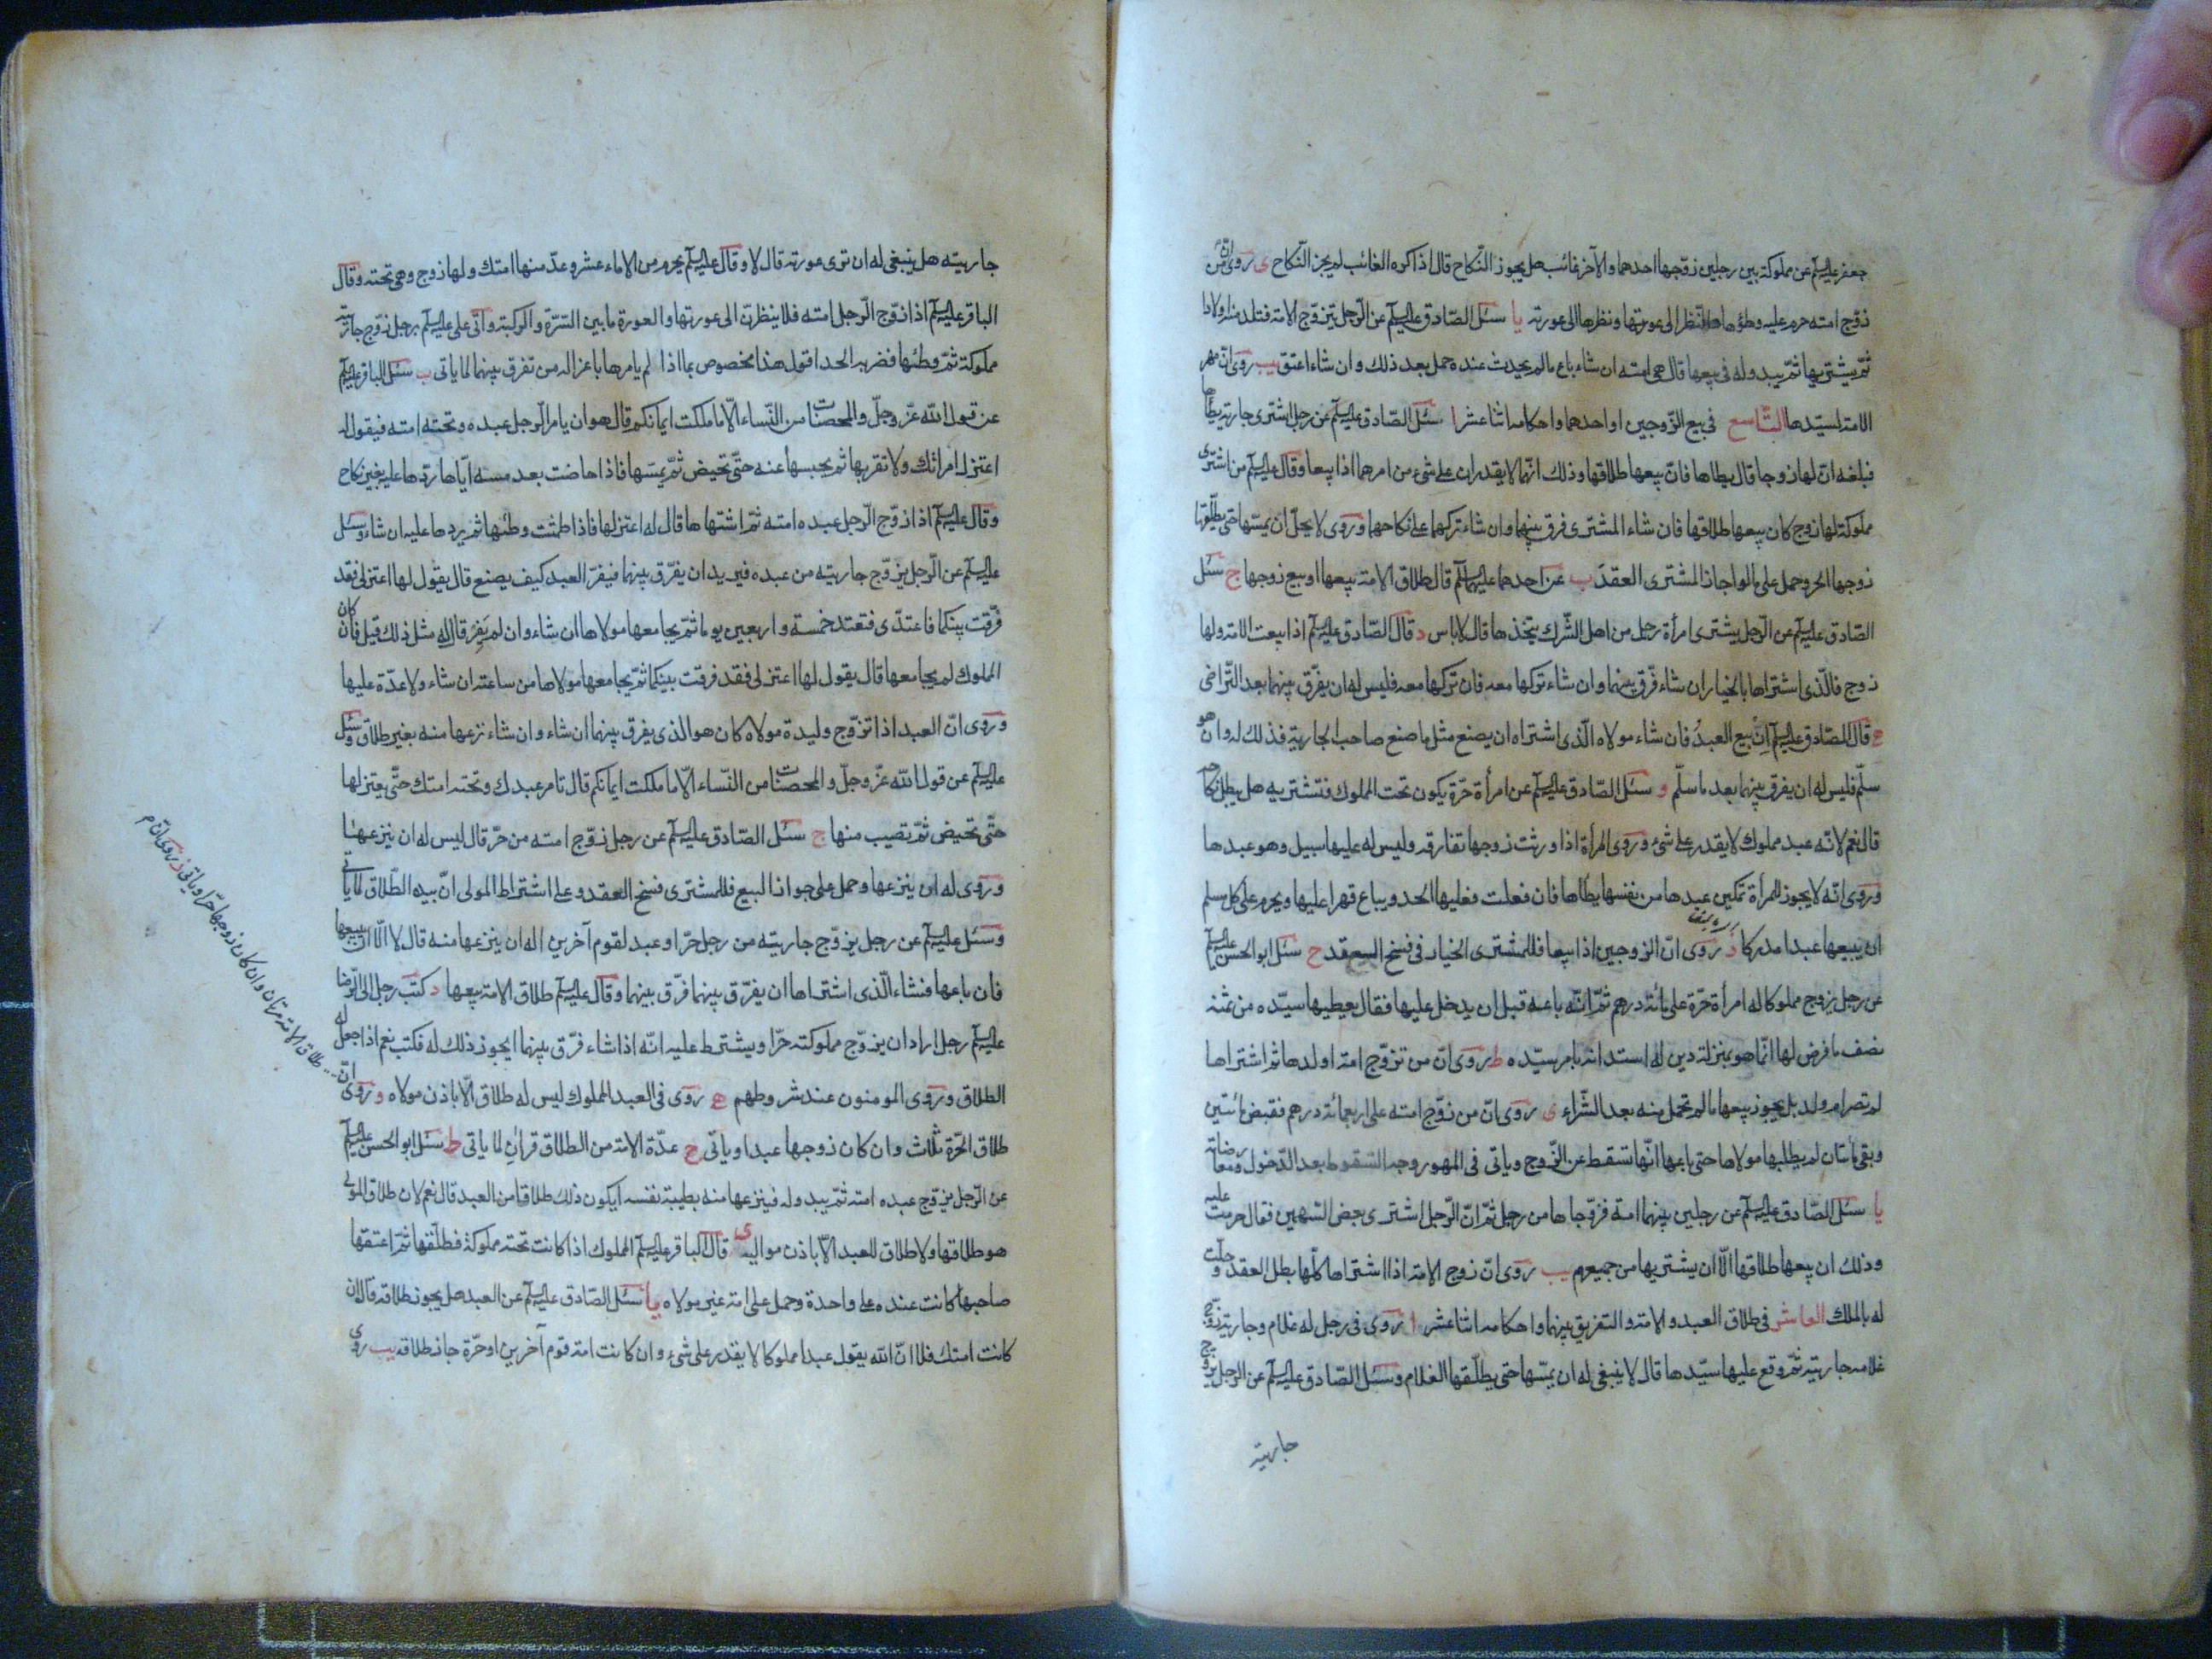 جعفر عليه السلم عن مملوكة بين رجلين زوّجها احدهما والآخر غائب هل يجوز النّكاح قال اذا كره الغائب لم يجز النّكاح ى روى انّ من
زوّج امته حرم عليه وطؤها والنّظر الى عورتها ونظرها الى عورته يا سئل الصّادق عليه السلم عن الرّجل تزوّج الامة فتلد منه اولادا
ثمّ يشتريها ثمّ يبدو له فى بيعها قال هى امته ان شاء باع ما لم يحدث عنده حمل بعد ذلك وان شاء اعتق يب روى انّ مهر
الامة لسيّدها التّاسع فى بيع الزّوجين او احدهما واحكامه اثنا عشر ا سئل الصّادق عليه السلم عن رجل اشترى جارية يطأها
فبلغه انّ لها زوجا قال يطاها فانّ بيعها طلاقها وذلك انّهما لا يقدران على شىء من امرهما اذا بيعا وقال عليه السلم من اشترى
مملوكة لها زوج كان بيعها طلاقها فان شاء المشترى فرق بينهما وان شاء تركهما على نكاحهما وروى لا يحلّ ان يمسّها حتى يطلّقها
زوجها الحر وحمل على ما لو اجاز المشترى العقد ب عن احدهما عليهما السلم قال طلاق الامة بيعها او بيع زوجها ج سئل
الصّادق عليه السلم عن الرّجل يشترى امرأة رجل من اهل الشّرك يتّخذها قال لا باس د قال الصّادق عليه السلم اذا بيعت الامة ولها
زوج فالّذى اشتراها بالخيار ان شاء فرّق بينهما وان شاء تركها معه فان تركها معه فليس له ان يفرّق بينهما بعد التّراضى
ه قال الصّادق عليه السلم ان بيع العبدُ فان شاء مولاه الّذى اشتراه ان يصنع مثل ما صنع صاحب الجارية فذلك له وان هو
سلّم فليس له ان يفرق بينهما بعد ما سلّم و سئل الصّادق عليه السلم عن امرأة حرّة يكون تحت المملوك فتشتريه هل يبطل نكاحه
قال نعم لانّه عبد مملوك لا يقدر على شىء وروى المرأة اذا ورثت زوجها تفارقه وليس له عليها سبيل وهو عبدها
وروى انّه لا يجوز للمرأة تمكين عبدها من نفسها يطأها فان فعلت فعليها الحد ويباع قهرا عليها ويحرم على كل مسلم
ان يبيعها عبدا مدركا ز روى انّ الزوجين اذا بيعا فللمشترى الخيار فى فسخ العقد ح سئل ابو الحسن عليه السلم
عن رجل يزوج مملوكا له امرأة حرّة على مائة درهم ثمّ انّه باعه قبل ان يدخل عليها فقال يعطيها سيّده من ثمنه
نصف ما فرض لها انّما هو بمنزلة دين له استدانه بامر سيّده ط روى انّ من تزوّج امة اولدها ثم اشتراها
لم تصر ام ولد بل يجوز بيعها ما لم تحمل منه بعد الشّراء ى روى انّ من زوّج امته على اربعمائة درهم فقبض مائتين
وبقى مائتان لم يطلبها مولاها حتى باعها انّها تسقط عن الزّوج وياتى فى المهور وجه السّقوط بعد الدّخول
يا سئل الصّادق عليه السلم عن رجلين بينهما امة فزوّجاها من رجل ثمّ انّ الرّجل اشترى بعض السّهمين فقال حرمت عليه
وذلك ان بيعها طلاقها الّا ان يشتريها من جميعهم يب روى انّ زوج الامة اذا اشتراها كلّها بطل العقد وحلّت
له بالملك العاشر فى طلاق العبد والامة والتفريق بينهما واحكامه اثنا عشر ا روى فى رجل له غلام وجارية زوّج
غلامه جاريته ثمّ وقع عليها سيّدها قال لا ينبغى له ان يمسّها حتى يطلّقها الغلام وسئل الصّادق عليه السلم عن الرجل يزوّج
جاريته
جاريته هل ينبغى له ان ترى عورته قال لا وقال عليه السلم يحرم من الاماء عشر وعدّ منها امتك ولها زوج وهى تحته وقال
الباقر عليه السلم اذا زوّج الرّجل امته فلا ينظرنّ الى عورتها والعورة ما بين السّرّة والركبة واتى على عليه السلم برجل زوّج جاريته
مملوكه ثمّ وطئها فضربه الحد اقول هذا مخصوص بما اذا لم يامرها باعتزاله من تفرق بينهما لما ياتى ب سئل الباقر عليه السلم
عن قول الله عزّ وجلّ والمحصنات من النّساء الّا ما ملكت ايمانكم قال هو ان يامر الرّجل عبده وتحته امته فيقول له
اعتزل امراتك ولا تقربها ثم يحبسها عنه حتّى تحيض ثمّ يمسّها فاذا حاضت بعد مسه ايّاها ردّها عليه بغير نكاح
وقال عليه السلم اذا زوّج الرّجل عبده امته ثمّ اشتهاها قال له اعتزلها فاذا طمثت وطئها ثم يردها عليه ان شاء وسئل
عليه السلم عن الرّجل يزوّج جاريته من عبده فيريد ان يفرّق بينهما فيفرّ العبد كيف يصنع قال يقول لها اعتزلى فقد
فرّقت بينكما فاعتدّى فتعتد خمسة واربعين يوما ثمّ يجامعها مولاها ان شاء وان لم يَفِرّ قال له مثل ذلك قيل فان كان
المملوك لم يجامعها قال يقول لها اعتزلى فقد فرقت بينكما ثمّ يجامعها مولاها من ساعته ان شاء ولا عدّة عليها
وروى انّ العبد اذا تزوّج وليدة مولاه كان هو الذى يفرق بينهما ان شاء وان شاء نزعها منه بغير طلاق وسئل
عليه السلم عن قول الله عزّ وجلّ والمحصنات من النّساء الّا ما ملكت ايمانكم قال تامر عبدك وتحته امتك حتّى يعتزلها
حتّى تحيض ثمّ تصيب منها ج سئل الصّادق عليه السلم عن رجل زوّج امته من حرّ قال ليس له ان ينزعها
وروى له ان ينزعها وحمل على جواز البيع فللمشترى فسخ العقد وعلى اشتراط المولى انّ بيده الطّلاق لما ياتى
وسئل عليه السلم عن رجل يزوّج جاريته من رجل حرّ او عبد لقوم آخرين اله ان ينزعها منه قال لا الّا ان يبيعها
فان باعها فشاء الّذى اشتراها ان يفرّق بينهما فرّق بينهما وقال عليه السلم طلاق الامة بيعها د كتب رجل الى الرّضا
عليه السلم رجل اراد ان يزوّج مملوكته حرّا ويشترط عليه انّه اذا شاء فرّق بينهما ايجوز ذلك له فكتب نعم اذا جعل له
الطلاق وروى المومنون عند شروطهم ه روى فى العبد المملوك ليس له طلاق الّا باذن مولاه و روى انّ
طلاق الحرّة ثلاث وان كان زوجها عبدا وياتى ح عدّة الامة من الطلاق قرآن لما ياتى ط سئل ابو الحسن عليه السلم
عن الرّجل يزوّج عبده امته ثمّ يبدو له فينزعها منه بطيبة نفسه ايكون ذلك طلاقا من العبد قال نعم لان طلاق المولى
هو طلاقها ولا طلاق للعبد الّا باذن مواليه ى قال الباقر عليه السلم المملوك اذا كانت تحته مملوكة فطلّقها ثمّ اعتقها
صاحبها كانت عنده على واحدة وحمل على امة غير مولاه يا سئل الصّادق عليه السلم عن العبد هل يجوز طلاقه قال ان
كانت امتك فلا انّ الله يقول عبدا مملوكا لا يقدر على شىء وان كانت امة قوم آخرين او حرّة جاز طلاقه يب روى
طلاق الامة مرّتان وان كان زوجها حرّا وياتى ز روى انّ